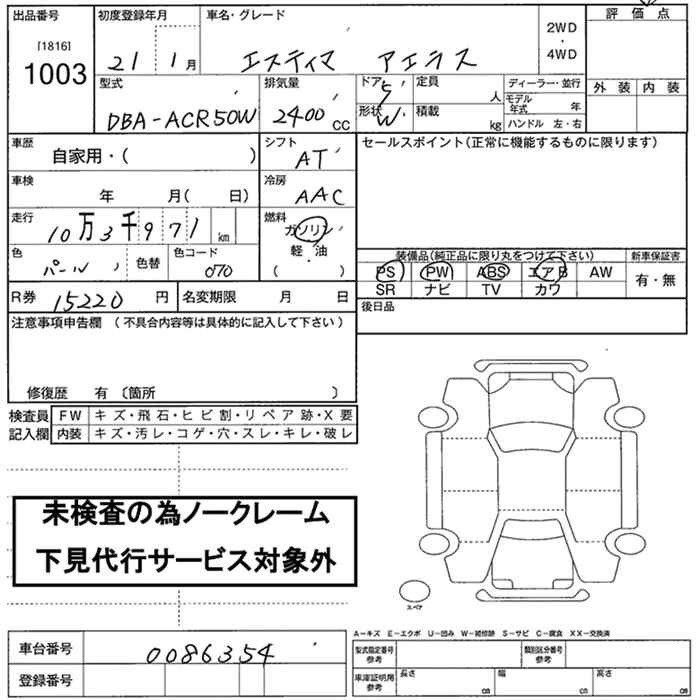 出品番号 初度登録年月 車名・グレード 評価点
[1816]
1003 21 1月 エスティマ アエラス 2WD・4WD
外装 内装
型式 排気量 ドア 定員 ディーラー・並行
DBA-ACR50W 2400cc 5 人 モデル年式 年
形状 W 積載 kg ハンドル 左・右
車歴 シフト セールスポイント(正常に機能するものに限ります)
自家用・( ) AT
車検 冷房
年 月( 日) AAC
走行 燃料
10万3千971km ガソリン
軽・油
( )
色 色替 色コード
パール 070
装備品(純正品に限り丸をつけて下さい) 新車保証書
PS PW ABS エアB AW 有・無
SR ナビ TV カワ
R券 15220円 名変期限 月 日 後日品
注意事項申告欄 (不具合内容等は具体的に記入して下さい)
修復歴 有 〔箇所 〕
検査員 FW キズ・飛石・ヒビ割・リペア跡・X要
記入欄 内装 キズ・汚レ・コゲ・穴・スレ・キレ・破レ
未検査の為ノークレーム
下見代行サービス対象外
スペア
A-キズ E-エクボ U-凹み W-補修跡 S-サビ C-腐食 XX-交換済
車台番号 0086354 型式指定番号 参考 類別区分番号 参考
登録番号 車庫証明用 参考 長さ cm 幅 cm 高さ cm